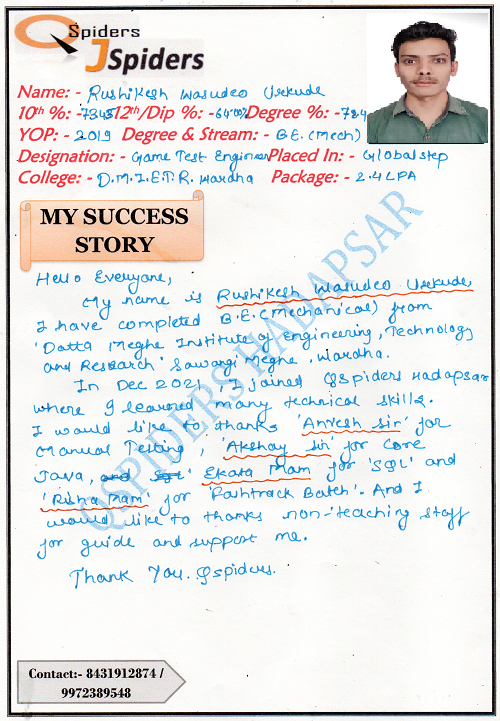 QSpiders
JSpiders
Name: - Rushikesh Wasudeo Urkude
10th %: - 73.45 12th/Dip %: - 64.00% Degree %: - 72.4
YOP: - 2019 Degree & Stream: - B.E. (Mech)
Designation: - Game Test Engineer Placed In: - Globalstep
College: - D.M.I.E.T.R. Wardha Package: - 2.4 LPA
MY SUCCESS
STORY
Hello Everyone,
My name is Rushikesh Wasudeo Urkude,
I have completed B.E.(Mechanical) from
'Datta Meghe Institute of Engineering, Technology
and Research' Sawangi Meghe, Wardha.
In Dec 2021, I joined Qspiders Hadapsar
where I learned many technical skills.
I would like to thanks 'Anvesh sir' for
Manual Testing, 'Akshay sir' for Core
Java, and 'Ekata Mam' for 'SQL' and
'Risha Mam' for 'Fashtrack Batch'. And I
would like to thanks non-teaching staff
for guide and support me.
Thank You. Qspiders.
QSPIDERS HADAPSAR
Contact:- 8431912874 /
9972389548